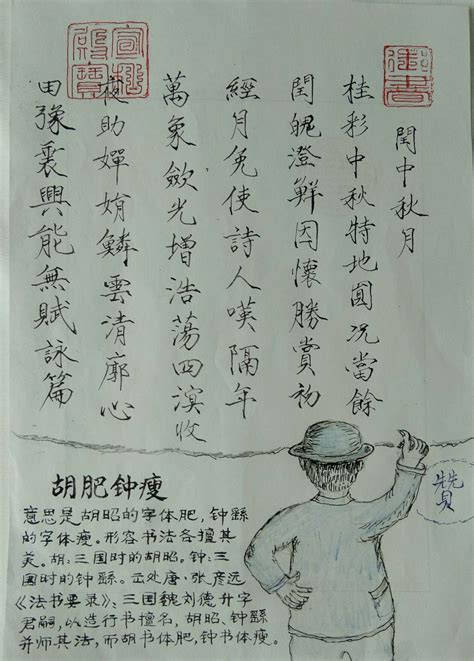 御書
閏中秋月
桂彩中秋特地圓况當餘
閏魄澄鮮因懷勝賞初
經月免使詩人嘆隔年
萬象斂光增浩蕩四溟收
夜助嬋娟鱗雲清廓心
田豫乘興能無賦詠篇
宣和殿寶
贊
胡肥钟瘦
意思是胡昭的字体肥,钟繇
的字体瘦。形容书法各擅其
美。胡:三国时的胡昭。钟:三
国时的钟繇。出处唐·张彦远
《法书要录》:三国魏刘德升字
君嗣,以造行书擅名,胡昭、钟繇
并师其法,而胡书体肥,钟书体瘦。